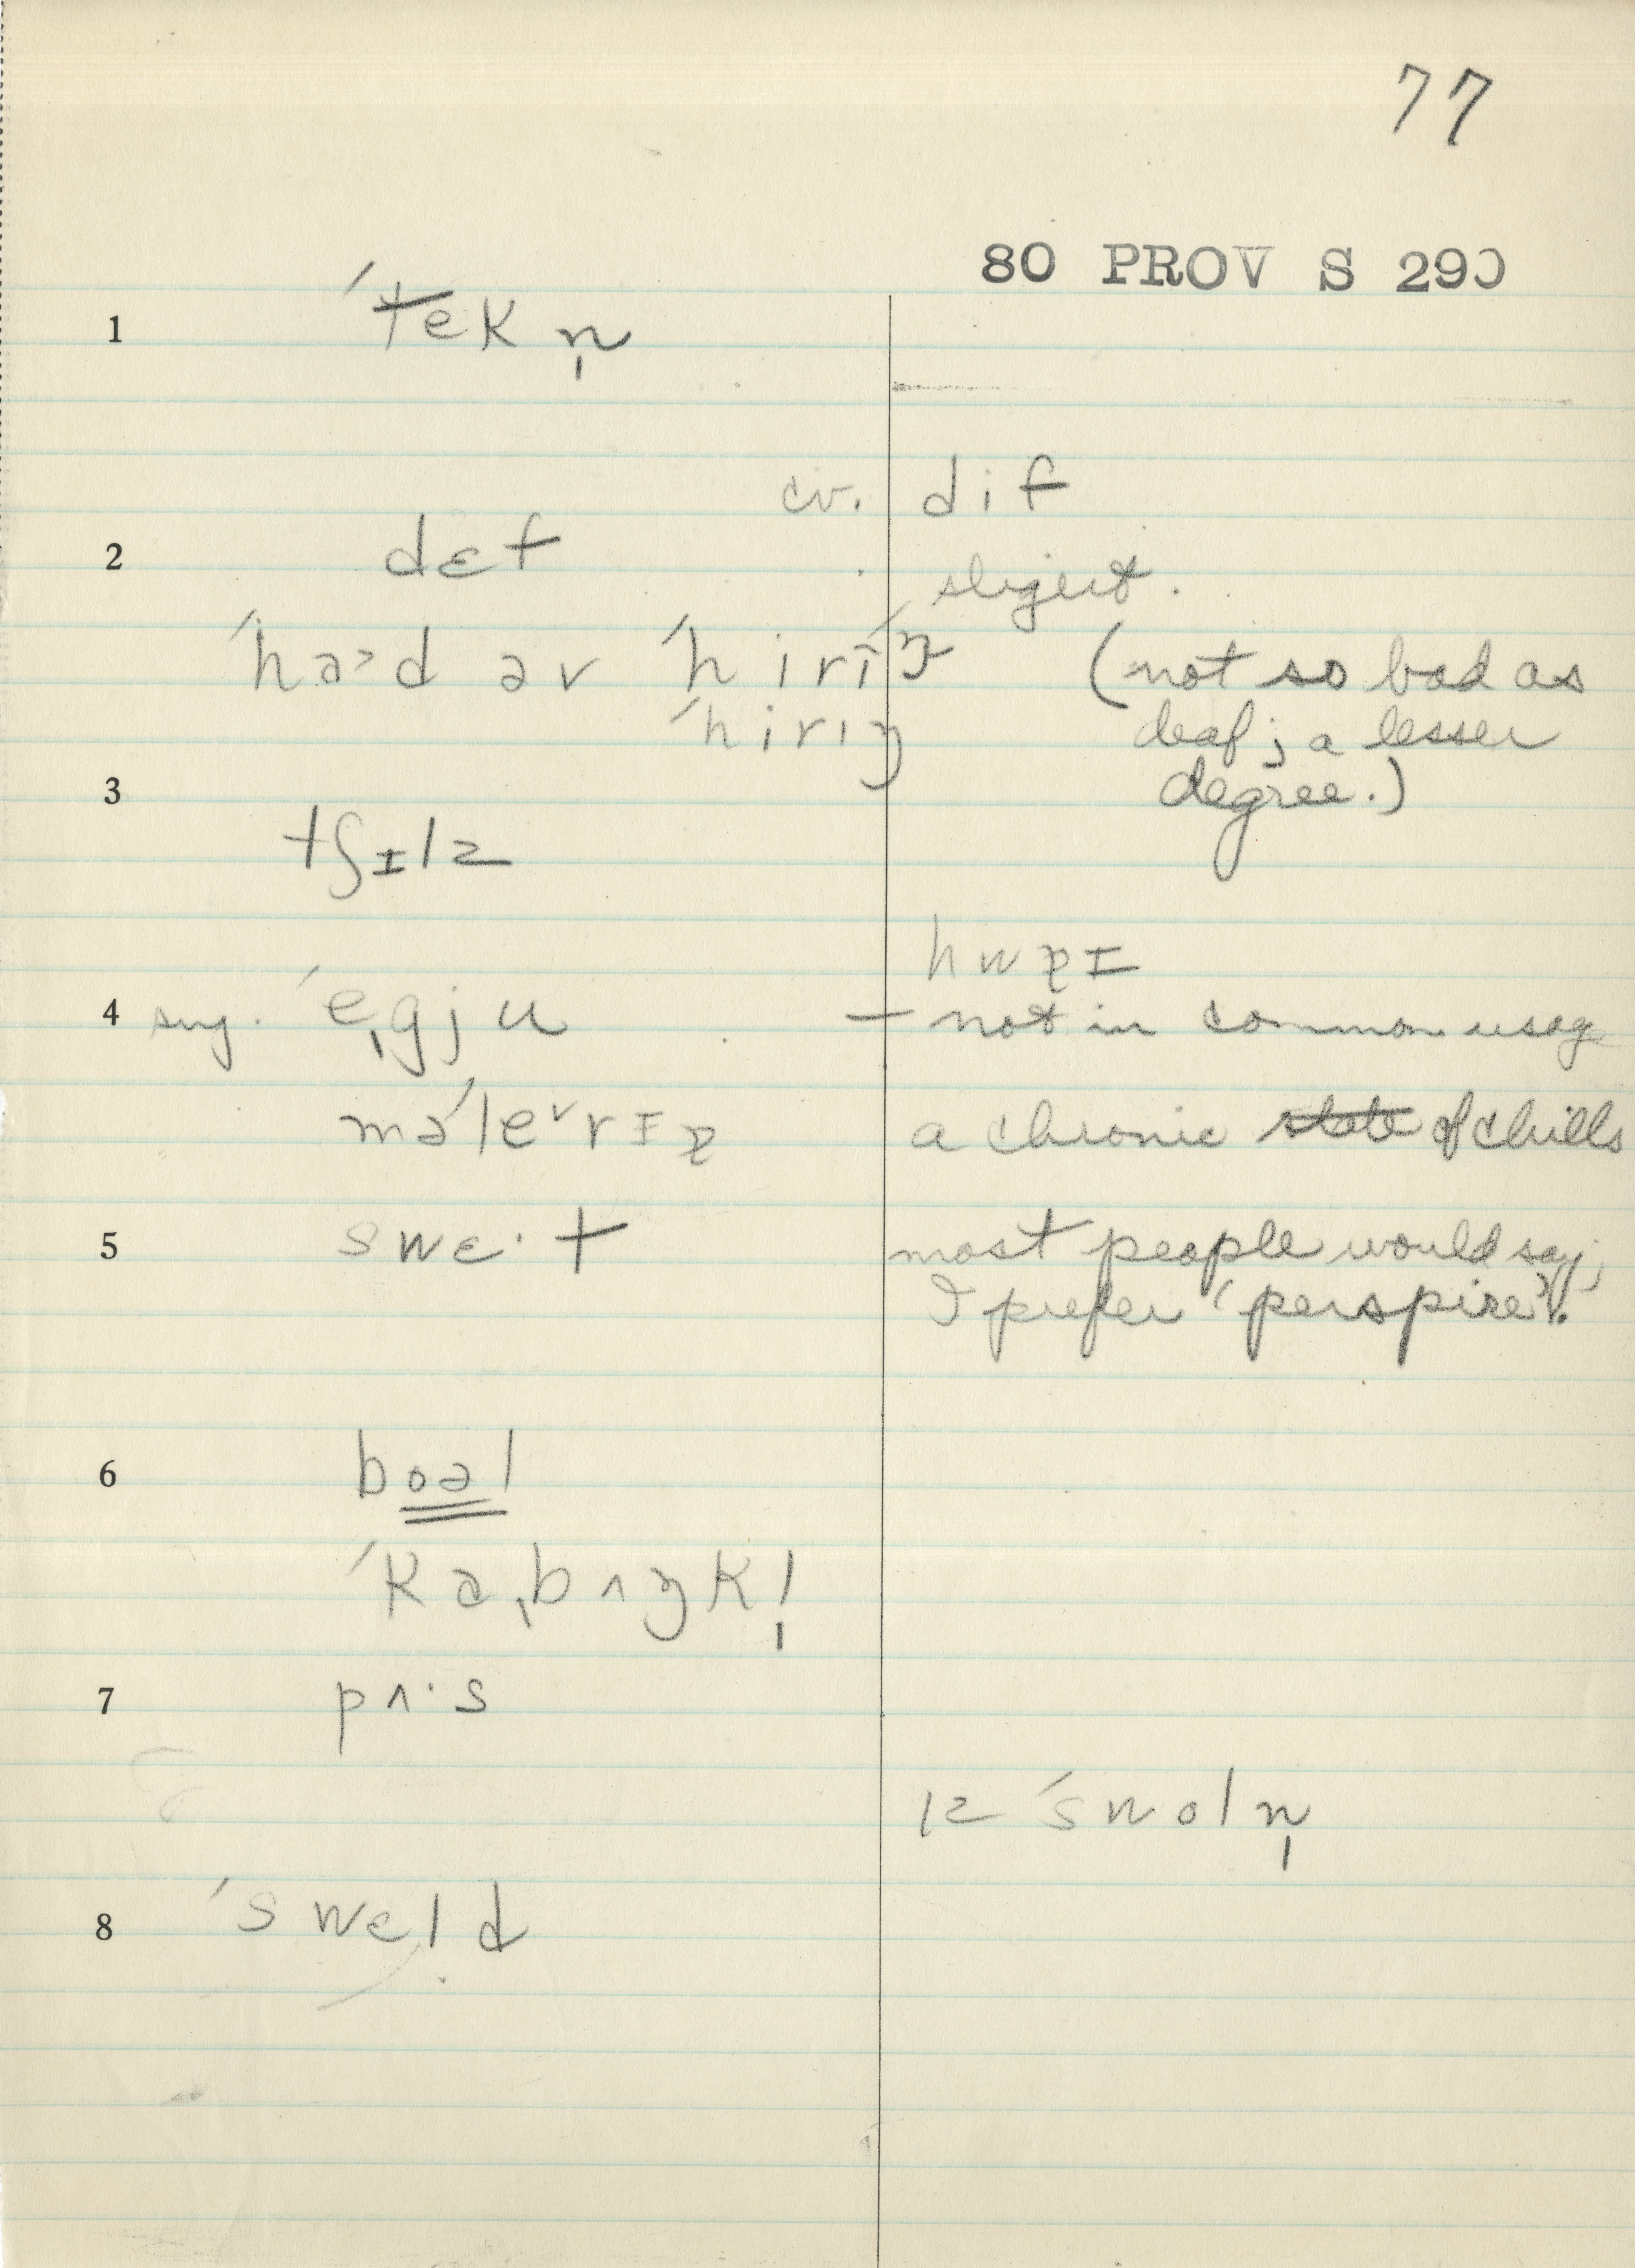 77
80 PROV S 290
1 ˈtekn̩
cv. dif
2 dɛf
slight.
ˈhaˑd əv ˈhirɪŋ (not so bad as
ˈhirɪŋ deaf; a lesser
3 degree.)
tʃɪlz
4 sug. ˈeˌgju — not in common usag
məˈleᵛrɪə a chronic state of chills
5 swɛ·t most people would say;
I prefer 'perspire'.
6 boəl
ˈkaˌbʌŋkl̩
7 pʌ·s
ɪz ˈswoln̩
8 ˈswɛld